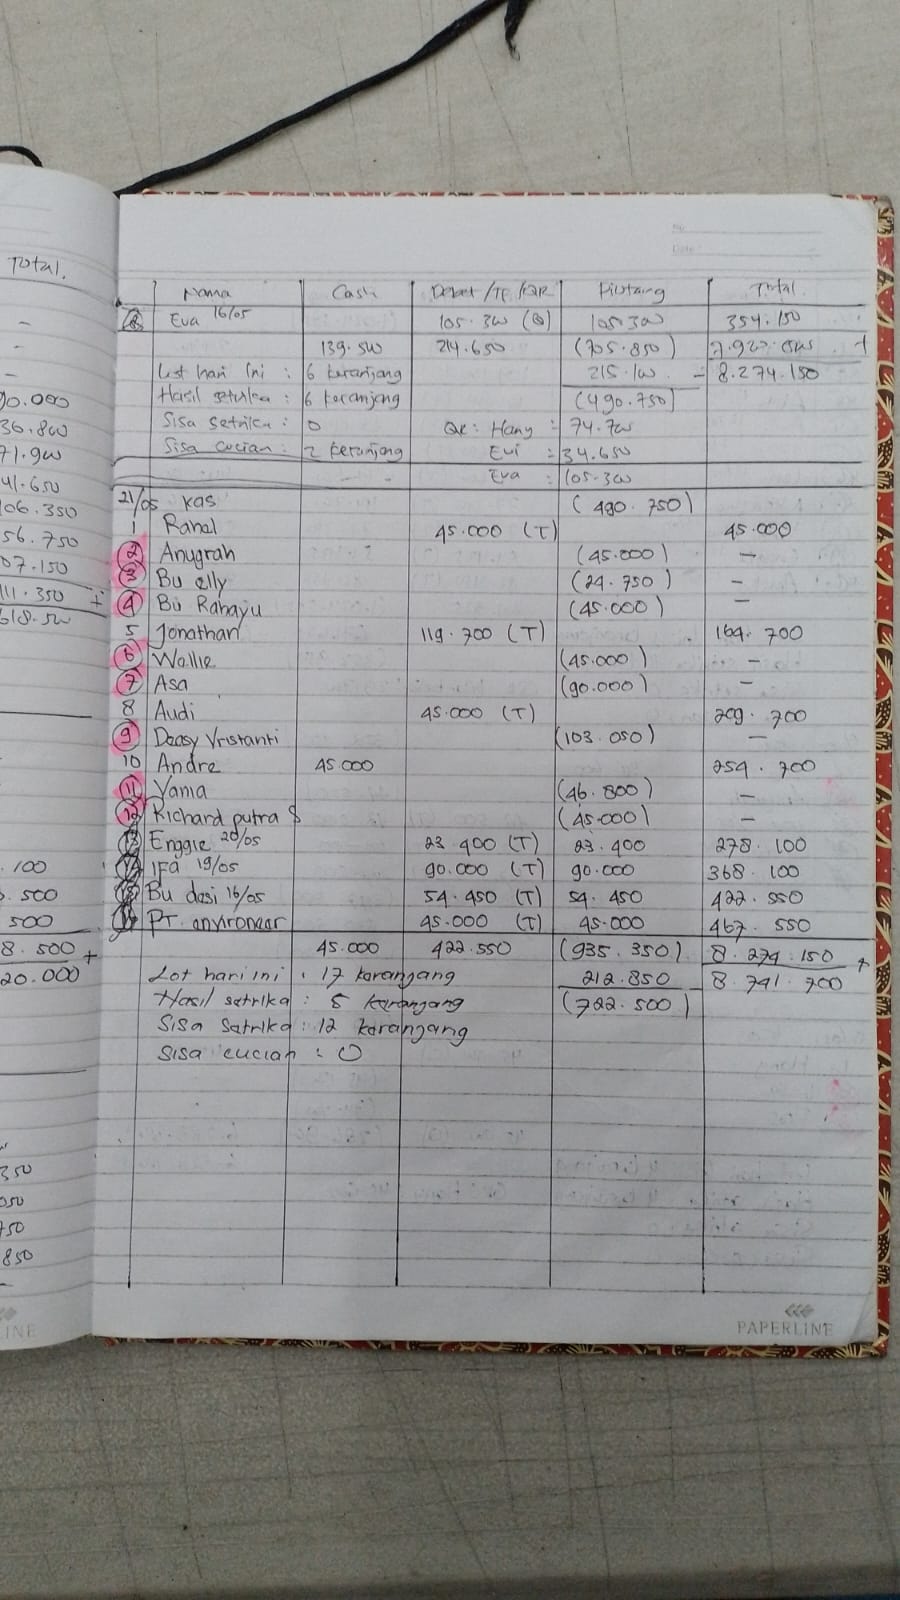 Total.
No
Date
Nama Cash Debet/TF/QR Piutang Total
Eva 16/05 105.300 (Q) 105.300 354.150
139.500 214.650 (705.850) +
Lst hari ini : 6 keranjang 215.100 8.274.150
Hasil setrika : 6 keranjang (490.750)
Sisa setrika : 0 QR : Hany = 74.700
Sisa cucian : 2 keranjang Evi = 34.650
Eva : 105.300
21/05 Kas (490.750)
1 Rahal 45.000 (T) 45.000
2 Anugrah (45.000) -
3 Bu elly (24.750) -
4 Bu Rahayu (45.000) -
5 Jonathan 119.700 (T) 164.700
6 Wallie (45.000) -
7 Asa (90.000) -
8 Audi 45.000 (T) 209.700
9 Deasy Yristanti (103.050) -
10 Andre 45.000 254.700
11 Yama (46.800) -
12 Richard putra S (45.000) -
13 Enggie 20/05 23.400 (T) 23.400 278.100
14 IFA 19/05 90.000 (T) 90.000 368.100
15 Bu desi 16/05 54.450 (T) 54.450 422.550
PT. anvironear 45.000 (T) 45.000 467.550
45.000 422.550 (935.350) 8.274.150 +
Lot hari ini : 17 karangang 212.850 8.741.700
Hasil satrika : 5 karangang (722.500)
Sisa Satrika : 12 karangang
Sisa cucian : 0
PAPERLINE
90.000
36.800
71.900
41.650
106.350
56.750
07.150
111.350 +
618.500
.100
.500
500
8.500 +
20.000
350
050
750
850
-
LINE